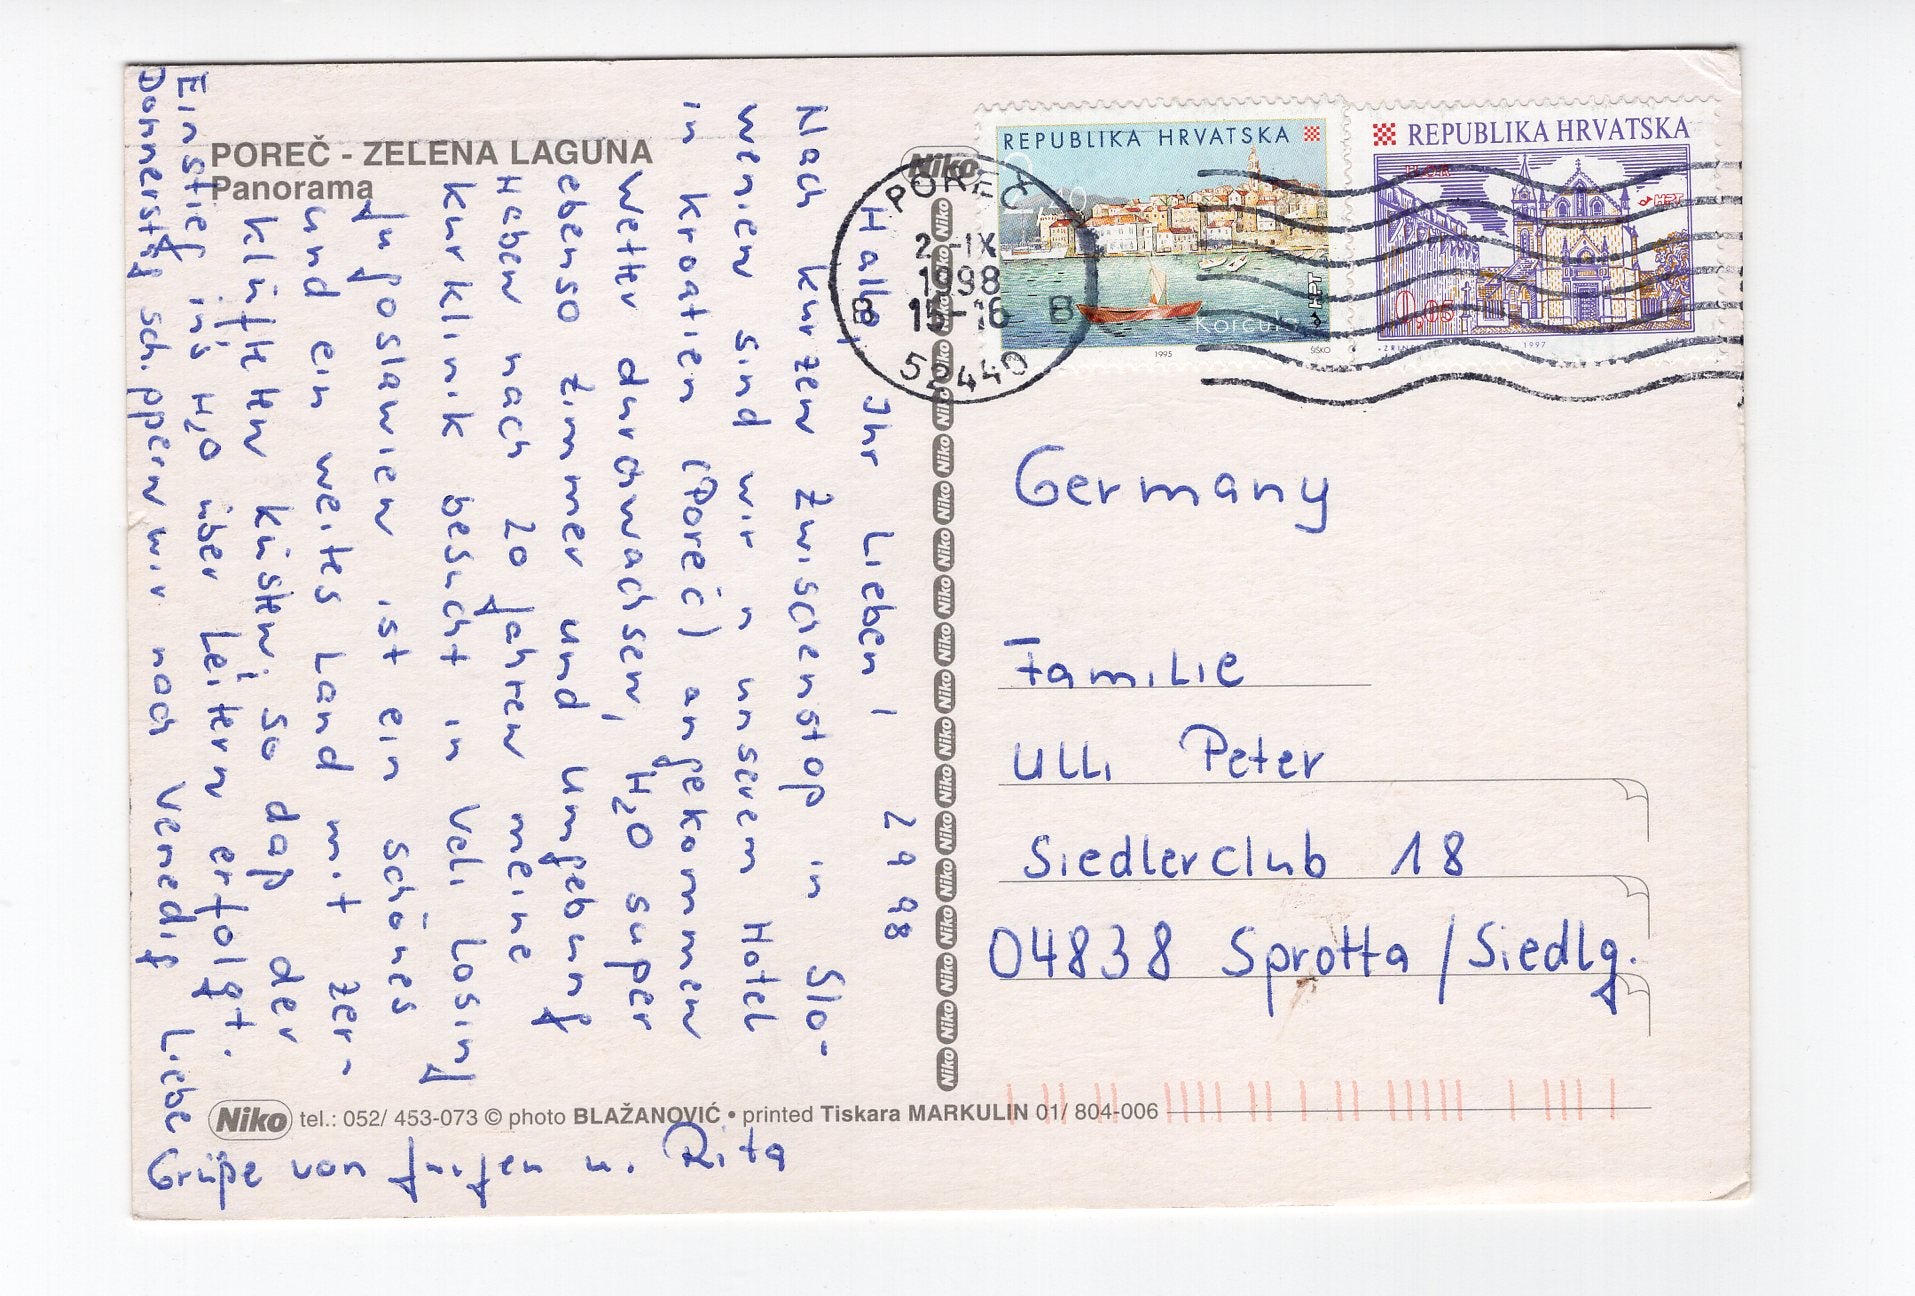 POREČ - ZELENA LAGUNA
Panorama
2 9 98
Hallo, Ihr Lieben!
Nach kurzem Zwischenstop in Slo-
wenien sind wir in unserem Hotel
in Kroatien (Poreč) angekommen
Wetter durchwachsen, H2O super
ebenso Zimmer und Umgebung
Haben nach 20 Jahren meine
Kurklinik besucht in Veli Losinj
Jugoslawien ist ein schönes
und ein weites Land mit zer-
klüfteten Küsten; so daß der
Einstieg in's H2O über Leitern erfolgt.
Donnerstg schippern wir nach Venedig Liebe
Grüße von Jürgen u. Rita
Niko
Niko Niko Niko Niko Niko Niko Niko Niko Niko Niko Niko Niko Niko Niko Niko Niko Niko Niko Niko
POREČ
2-IX
1998
15-16
B B
52440
REPUBLIKA HRVATSKA
Korčula
HPT
1995
ŠIŠKO
REPUBLIKA HRVATSKA
HPT
0,05
1997
Germany
Familie
Ulli Peter
Siedlerclub 18
04838 Sprotta / Siedlg.
Niko tel.: 052/ 453-073 © photo BLAŽANOVIĆ • printed Tiskara MARKULIN 01/ 804-006